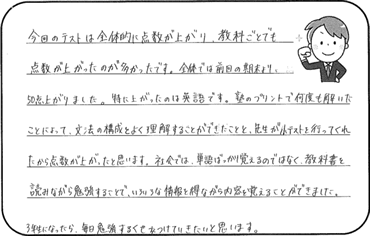 今回のテストは全体的に点数が上がり、教科ごとでも
点数が上がったのが多かったです。全体では前回の期末より、
50点上がりました。特に上がったのは英語です。塾のプリントで何度も解いた
ことによって、文法の構成をよく理解することができたことと、先生が小テストを行ってくれ
たから点数が上がったと思います。社会では、単語ばっかり覚えるのではなく、教科書を
読みながら勉強することで、いろいろな情報を得ながら内容を覚えることができました。
3年生になったら、毎日勉強するくせをつけていきたいと思います。